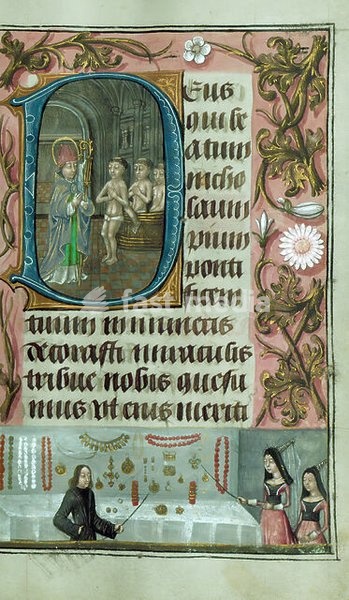 Deus
qui be
atum
nicho
laum
pium
ponti
ficem
fast media
tuum innumeris
decorasti miraculis
tribue nobis quesu
mus ut eius meriti